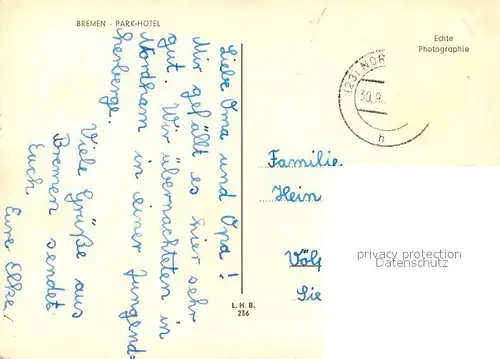 BREMEN · PARK-HOTEL
Echte
Photographie
Liebe Oma und Opa!
Mir gefällt es hier sehr
gut. Wir übernachteten in
Nordham in einer Jugend=
herberge.
Viele Grüße aus
Bremen sendet
Euch
Eure Elke!
(23) NOR
30.9.
h
Familie
Hein
Völp
Sie
L. H. B.
236
privacy protection
Datenschutz